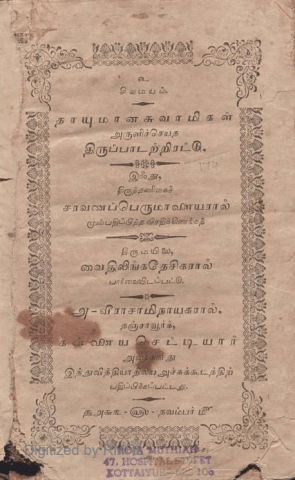 உ
சிவமயம்.
தாயுமானசுவாமிகள்
அருளிச்செய்த
திருப்பாடற்றிரட்டு.
இஃது,
திருத்தணிகைச்
சரவணப்பெருமாளையரால்
முன்பதிப்பித்த
திருமயிலை,
வைதிலிங்கதேசிகரால்
பார்வையிடப்பட்டு,
அ-வீராசாமிநாயகரால்,
தஞ்சாவூர்க்,
செட்டியார்
அச்சுக்கூடத்திற்
பதிப்பிக்கப்பட்டது.
நவம்பர் மீ
Digitized by ROJA MUTHIAH
47, HOSPITAL STREET
KOTTAIYUR 106